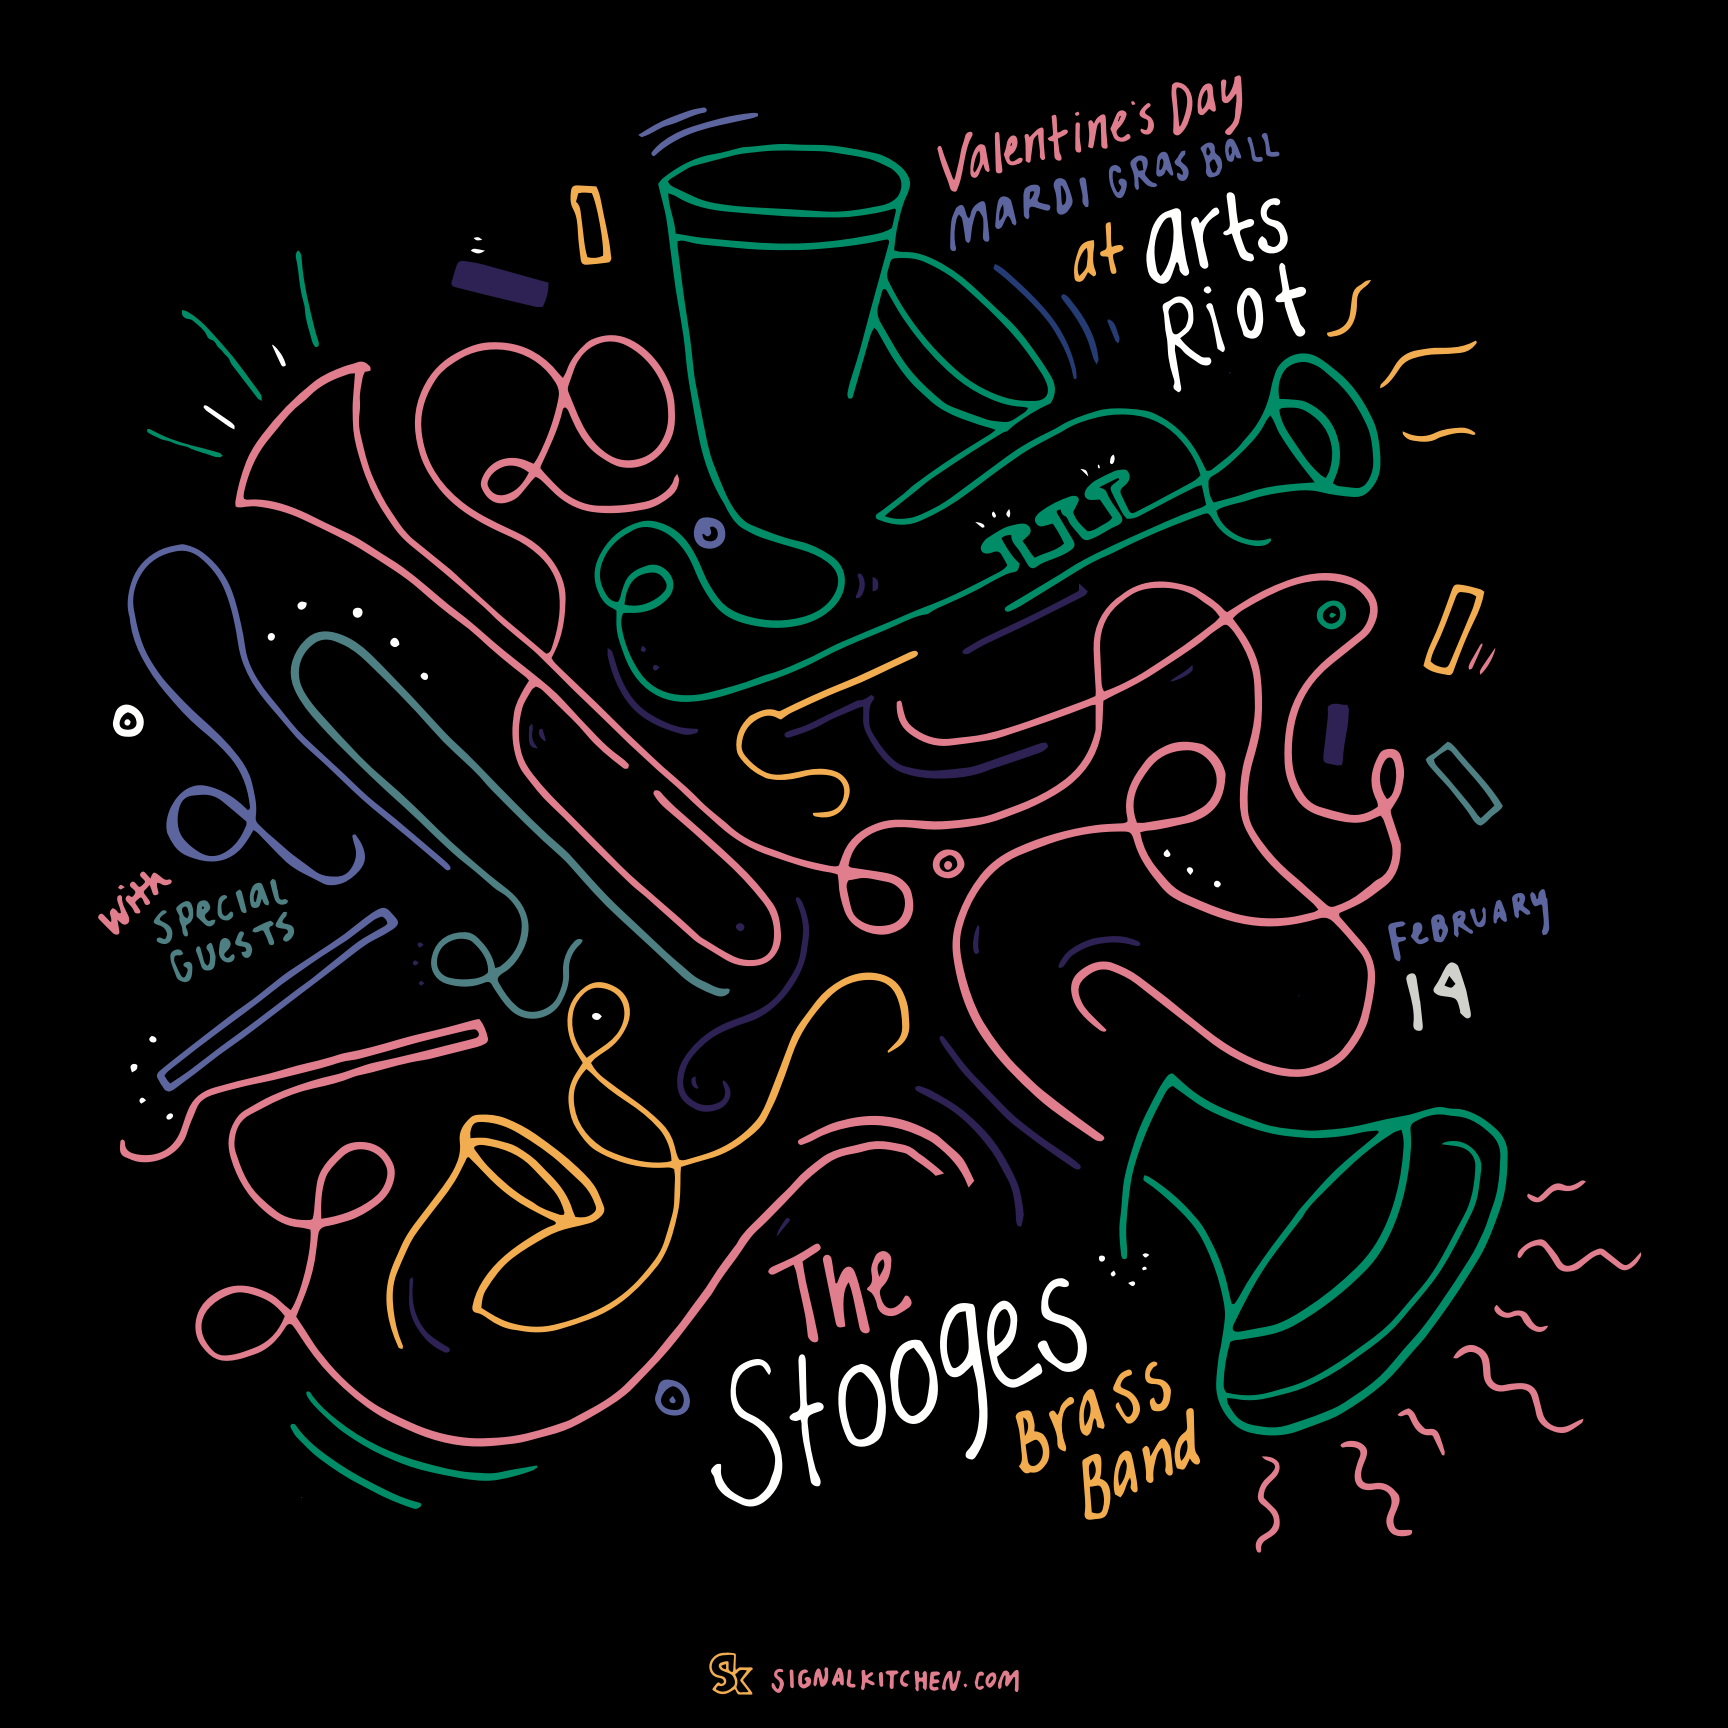 Valentine's Day
MARDI GRAS BALL
at arts
Riot
with
SPECIAL
GUESTS
FEBRUARY
14
The
Stooges
Brass
Band
SK SIGNALKITCHEN.COM